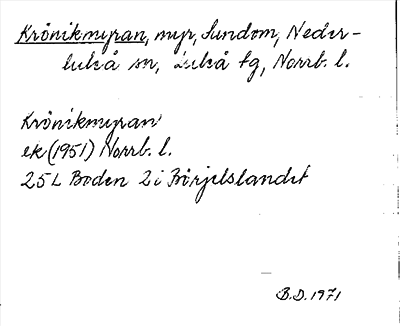 Krönikmyran, myr, Sundom, Neder-
luleå sn, Luleå tg, Norrb. l.
Krönikmyran
ek (1951) Norrb. l.
25L Boden 2i Börjelslandet
B.D. 1971